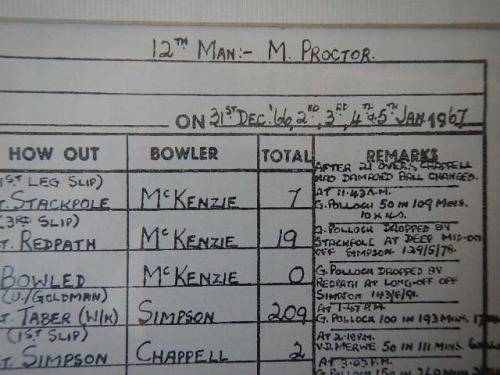 12TH MAN:- M. PROCTOR.
ON 31ST DEC. '66, 2ND, 3RD, 4TH & 5TH JAN. 1967
HOW OUT BOWLER TOTAL REMARKS
AFTER 21 OVERS, CHAPPELL
HAD DAMAGED BALL CHANGED.
(1ST LEG SLIP)
CT. STACKPOLE McKENZIE 7
AT 11.43 A.M.
G. POLLOCK 50 IN 109 MINS.
10 x 4s.
(3RD SLIP)
CT. REDPATH McKENZIE 19
G. POLLOCK DROPPED BY
STACKPOLE AT DEEP MID-ON
OFF SIMPSON 139/5/78.
BOWLED McKENZIE 0
G. POLLOCK DROPPED BY
REDPATH AT LONG-OFF OFF
SIMPSON 143/5/81.
(U./GOLDMAN)
CT. TABER (W/K) SIMPSON 209
AT 1.47 P.M.
G. POLLOCK 100 IN 193 MINS.
(1ST SLIP)
CT. SIMPSON CHAPPELL 2
AT 2.18 P.M.
V.D. MERWE 50 IN 111 MINS.
AT 3.03 P.M.
G. POLLOCK 150 IN